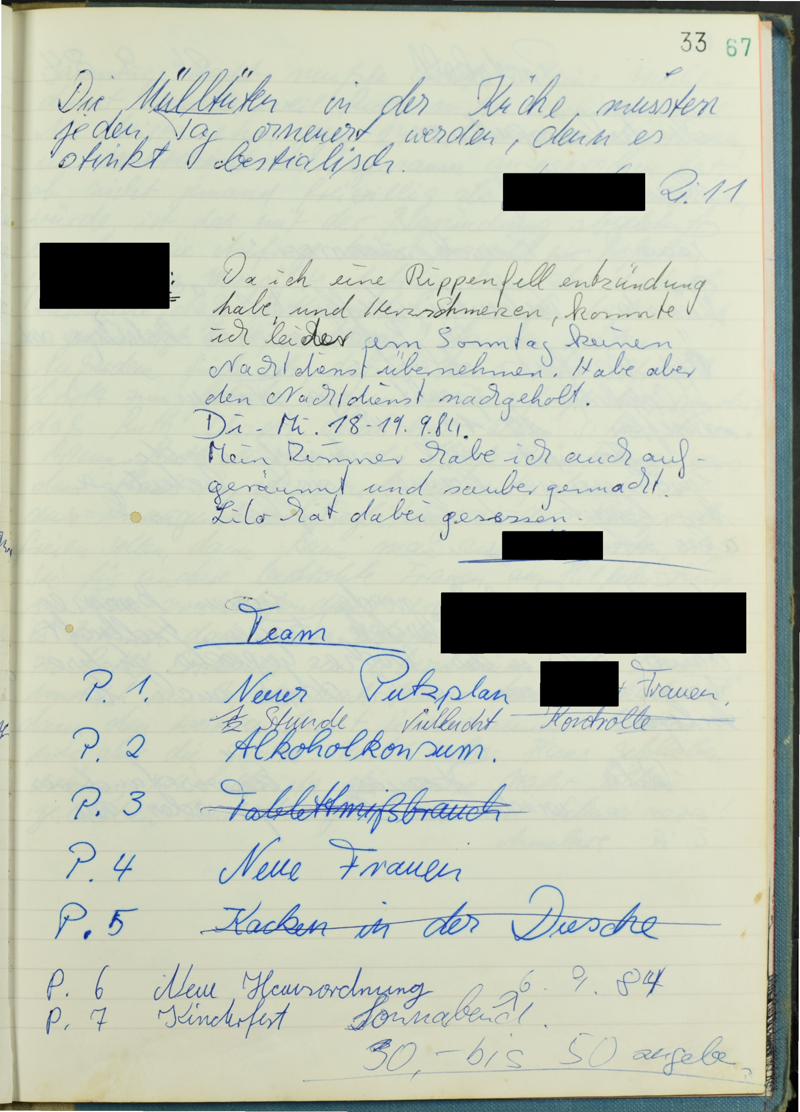 33 67
Die Mülltüten in der Küche müssten
jeden Tag erneuert werden, denn es
stinkt bestialisch.
Zi. 11
: Da ich eine Rippenfellentzündung
habe, und Herzschmerzen, konnte
ich leider am Sonntag keinen
Nachtdienst übernehmen. Habe aber
den Nachtdienst nachgeholt.
Di - Mi. 18-19. 9.84.
Mein Zimmer habe ich auch auf-
geräumt und saubergemacht.
Lilo hat dabei gesessen.
Team
P. 1. Neuer Putzplan + Frauen.
½ Stunde vielleicht Kontrolle
P. 2 Alkoholkonsum.
P. 3 Tablettmißbrauch
P. 4 Neue Frauen
P. 5 Kacken in der Dusche
P. 6 Neue Hausordnung 9. 84
P. 7 Kinderfest Sonnabend.
30,- bis 50